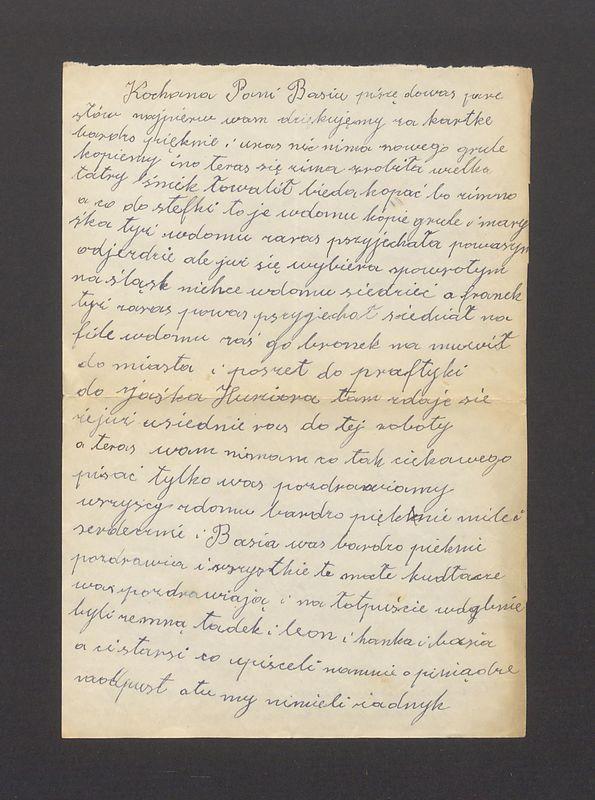 Kochana Pani Basiu piszę dowas pare
słów najpierw wam dziekujęmy za kartke
bardzo pięknie i unas nic nima nowego grule
kopiemy ino teras się zima zrobiła wielka
tatry śniek łowalił bieda kopać bo zimno
a co do stefki to je wdomu kopie grule i mary
śka tyż wdomu zaras przyjechała powaszyn
odjezdzie ale już się wybiera spowrotym
na śląsk niehce wdomu siedzieć a franek
tyż zaras powas przyjechał siedział na
file wdomu zaś go bronek na muwił
do miasta i poszet do praftyki
do jaśka tam zdaje sie
zejuż usiednie ras do tej roboty
a teras wam nimam co tak ciekawego
pisać tylko was pozdrawiamy
wszyscy zdomu bardzo pięknie mile i
serdecznie i Basia was bardzo pieknie
pozdrawia i wszystkie te małe kudłacze
was pozdrawiają i na łotpuście wdębnie
byli zemną tadek i leon i hanka i basia
a ci starsi co upisceli namnie o piniądze
naodpust atu my nimieli żadnyk